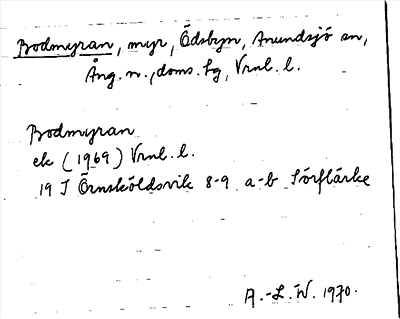 Bodmyran, myr, Ödsbyn, Anundsjö sn,
Ång. n., doms. lg, Vrnl. l.
Bodmyran
ek (1969) Vrnl. l.
19 J Örnsköldsvik 8-9 a-b Sörflärke
A.-L. W. 1970.